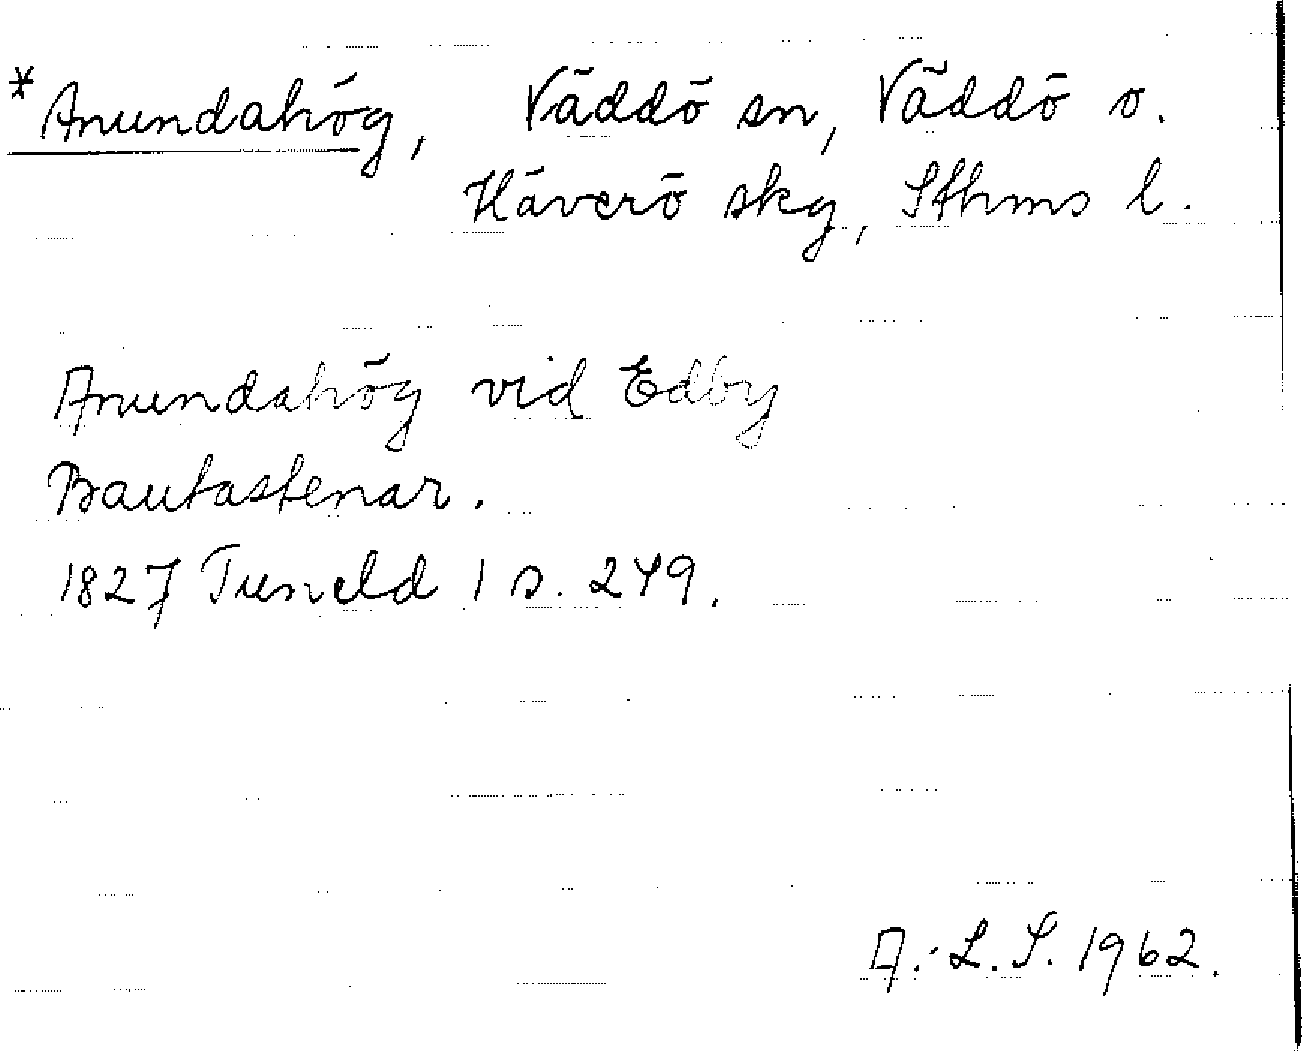 *Anundahög, Väddö sn, Väddö o.
Häverö skg, Sthms l.
Anundahög vid Edby
Bautastenar.
1827 Tuneld 1 s. 249.
A.-L.S. 1962.